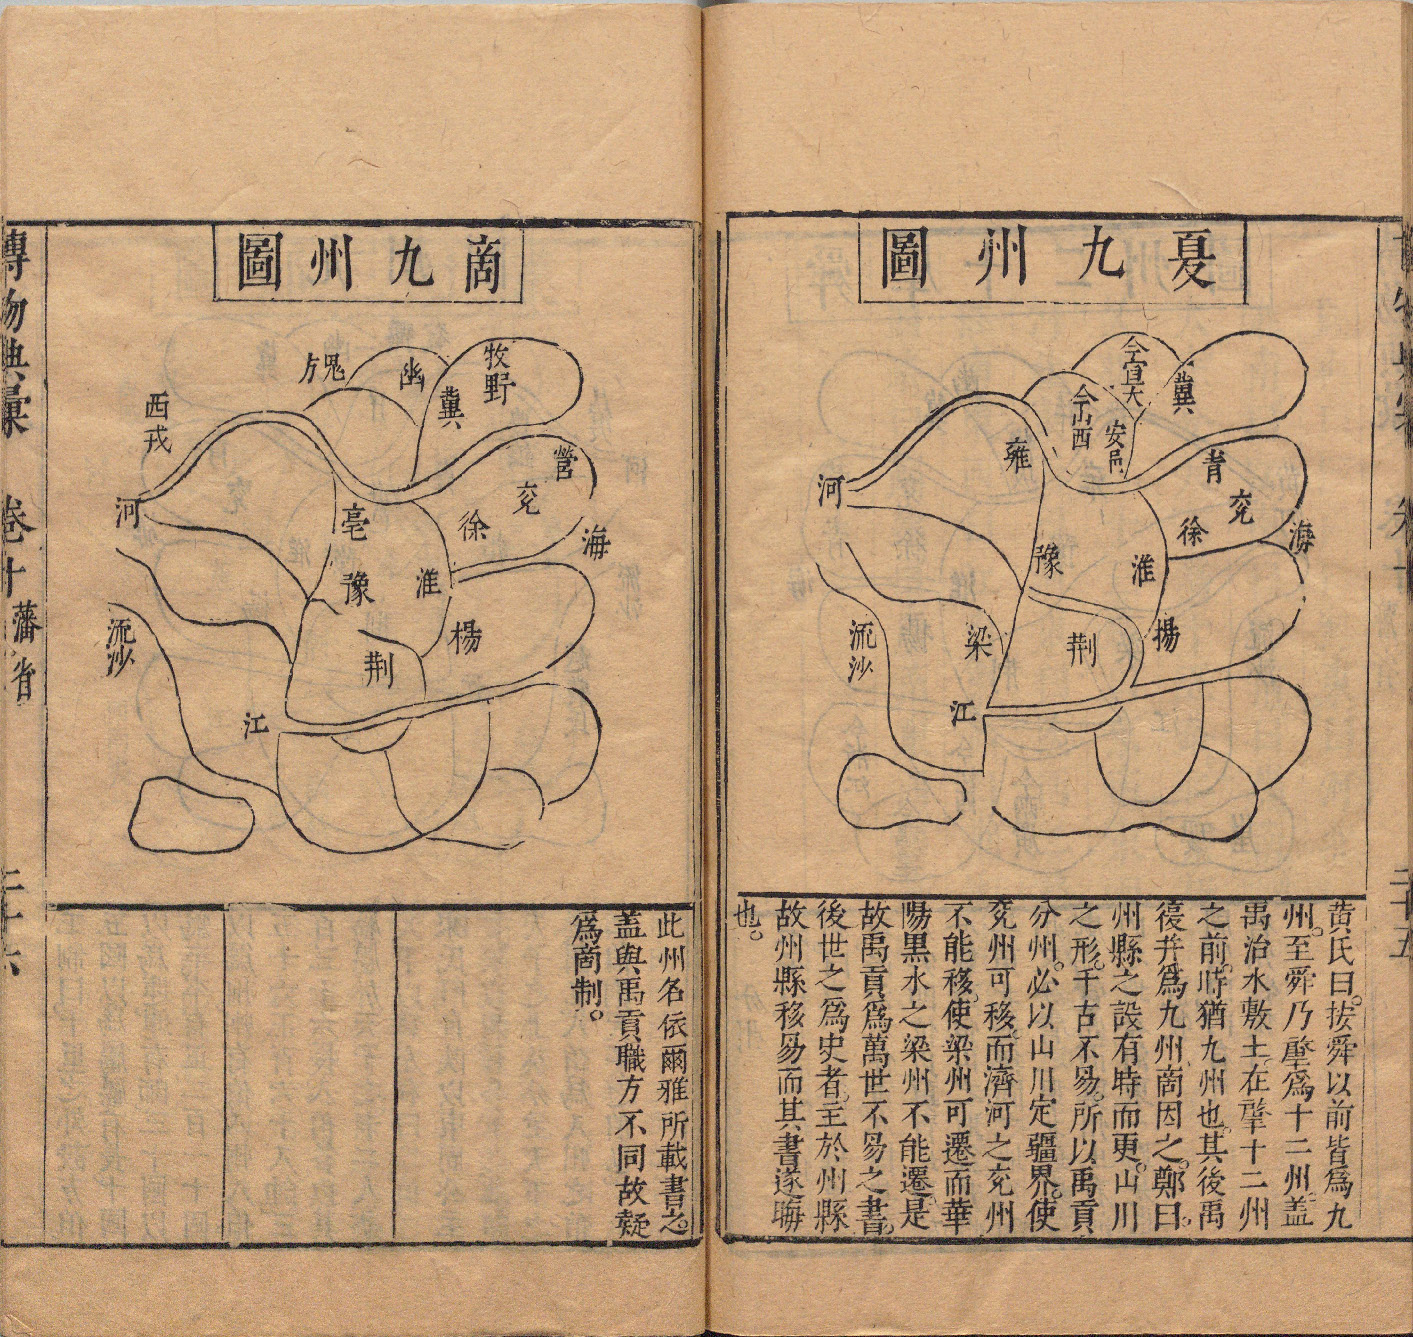 夏九州圖
今宣大
冀
今山西
安邑
雍
青
兗
徐
海
河
豫
淮
梁
荆
揚
流沙
江
黄氏曰。按舜以前皆爲九
州。至舜乃肇爲十二州。盖
禹治水敷土在肇十二州
之前。時猶九州也。其後禹
復并爲九州。啇因之。鄭曰。
州縣之設有時而更。山川
之形。千古不易。所以禹貢
分州。必以山川定疆界。使
兗州可移。而濟河之兗州
不能移。使梁州可遷。而華
陽黒水之梁州不能遷。是
故禹貢爲萬世不易之書。
後世之爲史者。主於州縣
故州縣移易而其書遂晦
也。
二十五
啇九州圖
牧野
幽
鬼方
冀
西戎
營
兗
徐
海
河
亳
豫
淮
楊
荆
流沙
江
此州名依爾雅所載書之。
盖與禹貢職方不同故疑
爲啇制。
博物典彙
卷十
藩省
二十六